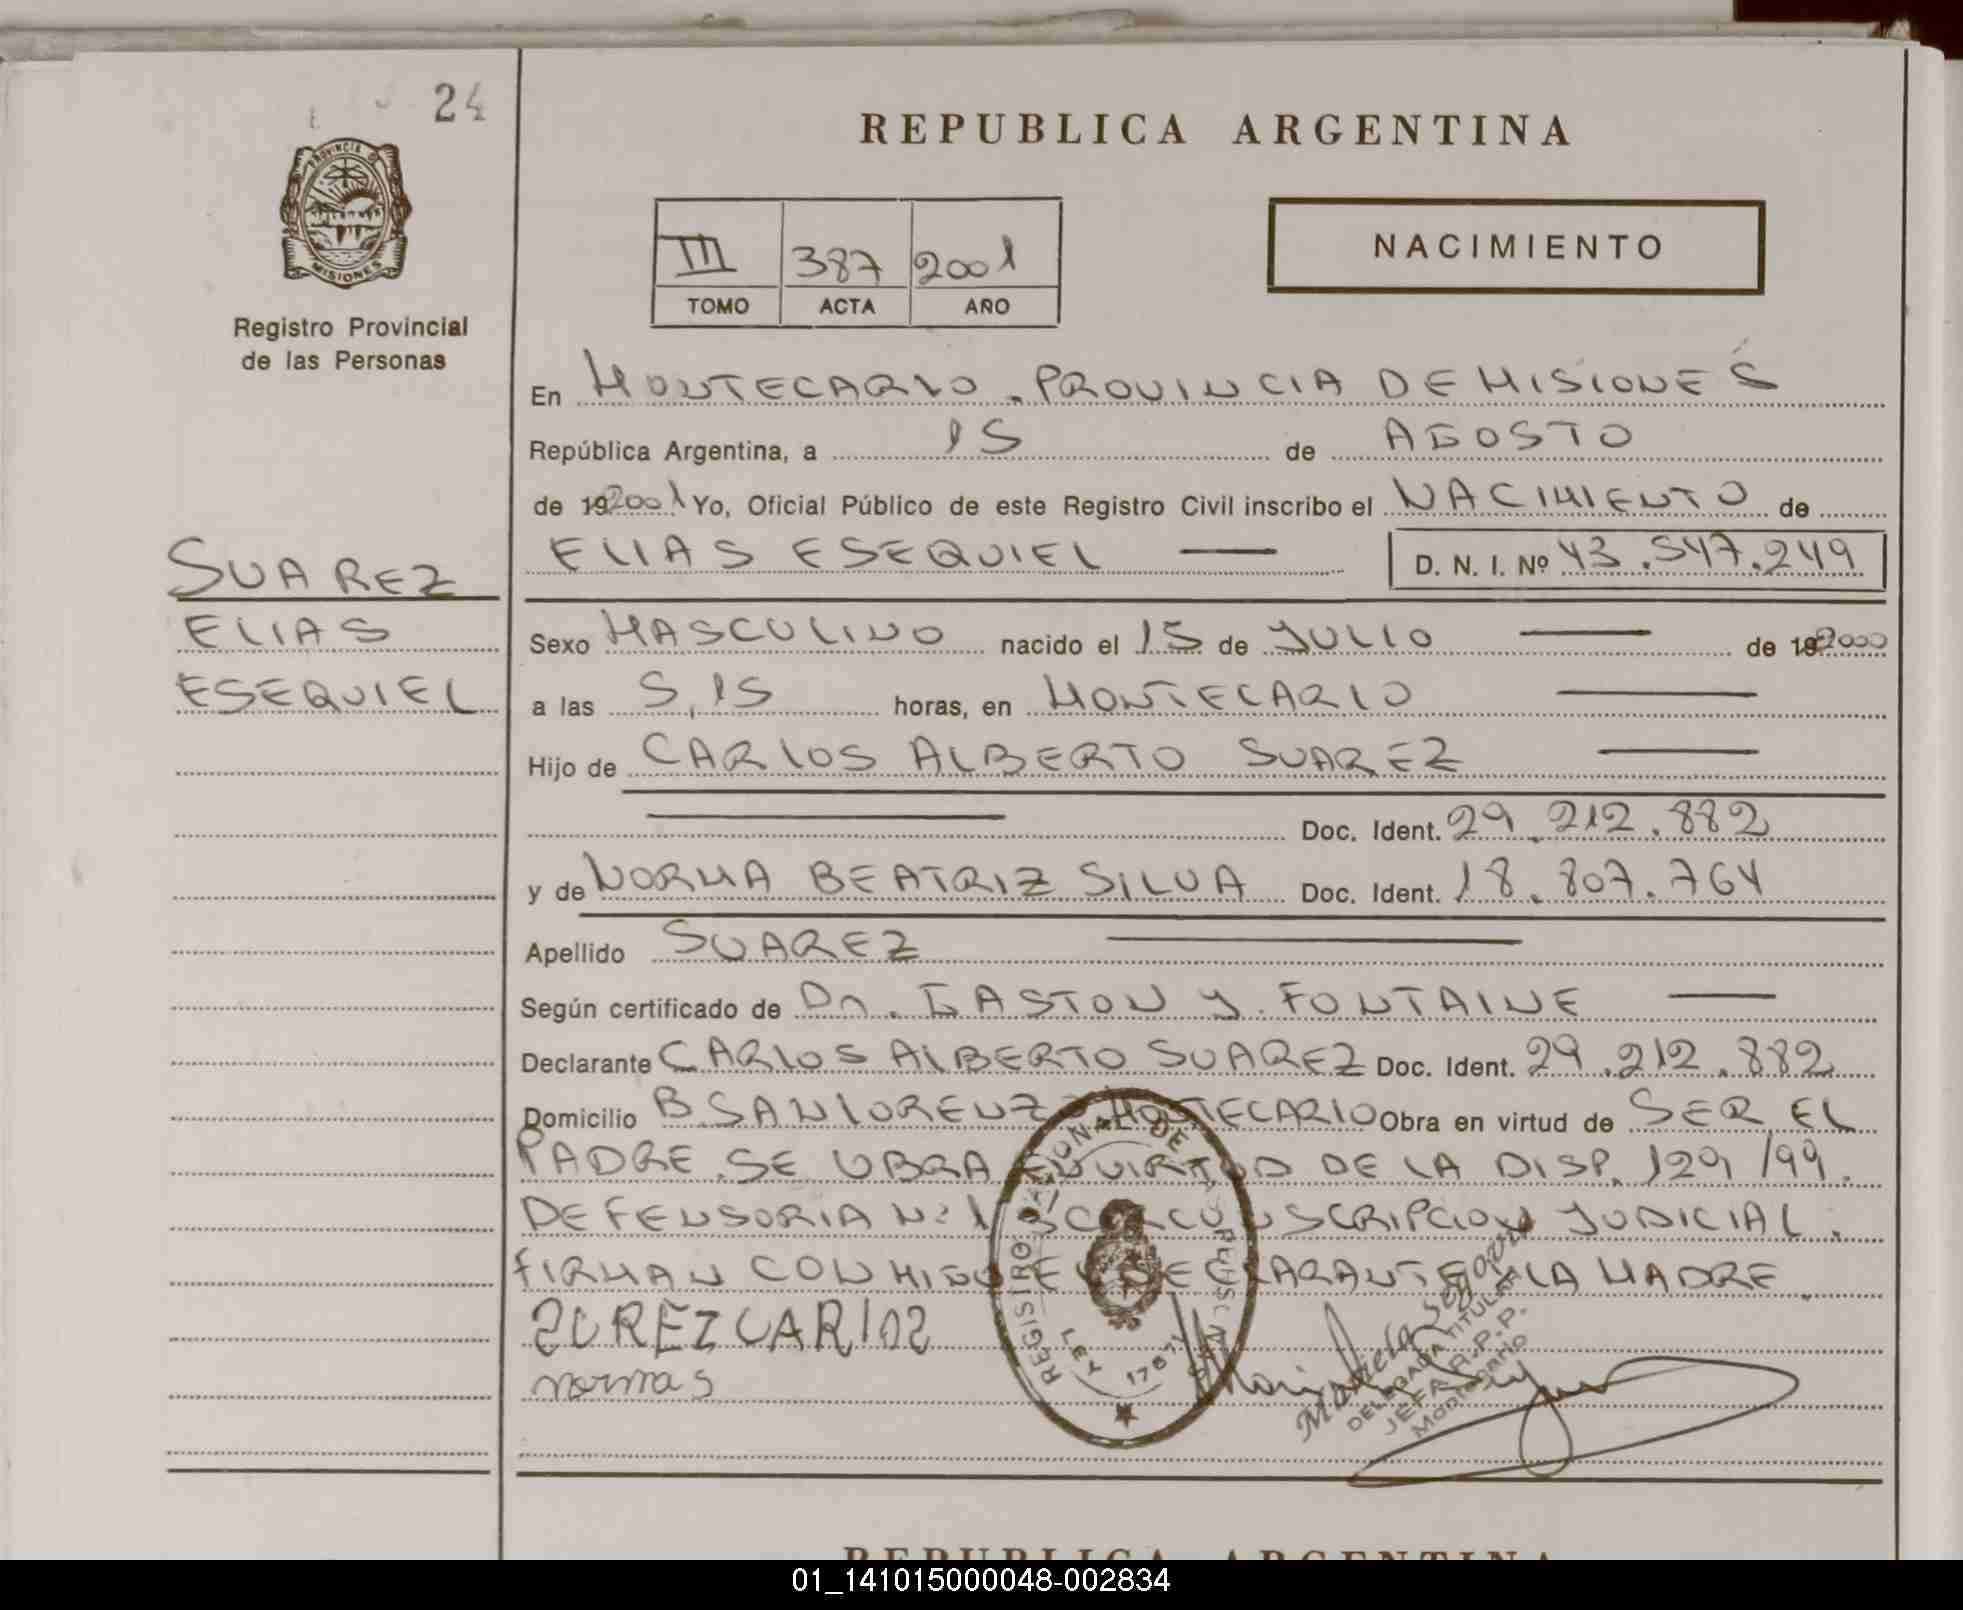 24
REPUBLICA ARGENTINA
PROVINCIA D
MISIONES
NACIMIENTO
III 387 2001
TOMO ACTA AÑO
Registro Provincial
de las Personas
En MONTECARLO. PROVINCIA DE MISIONES
República Argentina, a 15 de AGOSTO
de 192001 Yo, Oficial Público de este Registro Civil inscribo el NACIMIENTO de
ELIAS ESEQUIEL D. N. I. Nº 43.547.249
SUAREZ
ELIAS
ESEQUIEL
Sexo MASCULINO nacido el 15 de JULIO de 192000
a las 5,15 horas, en MONTECARLO
Hijo de CARLOS ALBERTO SUAREZ
Doc. Ident. 29.212.882
y de NORMA BEATRIZ SILVA Doc. Ident. 18.807.764
Apellido SUAREZ
Según certificado de Dr. GASTON J. FONTAINE
Declarante CARLOS ALBERTO SUAREZ Doc. Ident. 29.212.882
Domicilio B SAN LORENZO MONTECARLO Obra en virtud de SER EL
PADRE. SE OBRA EN VIRTUD DE LA DISP. 129/99.
DEFENSORIA Nº 1 CIRCUNSCRIPCION JUDICIAL.
FIRMAN CONMIGO EL DECLARANTE Y LA MADRE.
ZUREZ CARLOS
normas
REGISTRO NACIONAL DE LAS PERSONAS
LEY 17671
DELEGADA TITULAR
JEFA R.P.P.
Montecarlo
REPUBLICA ARGENTINA
01_141015000048-002834